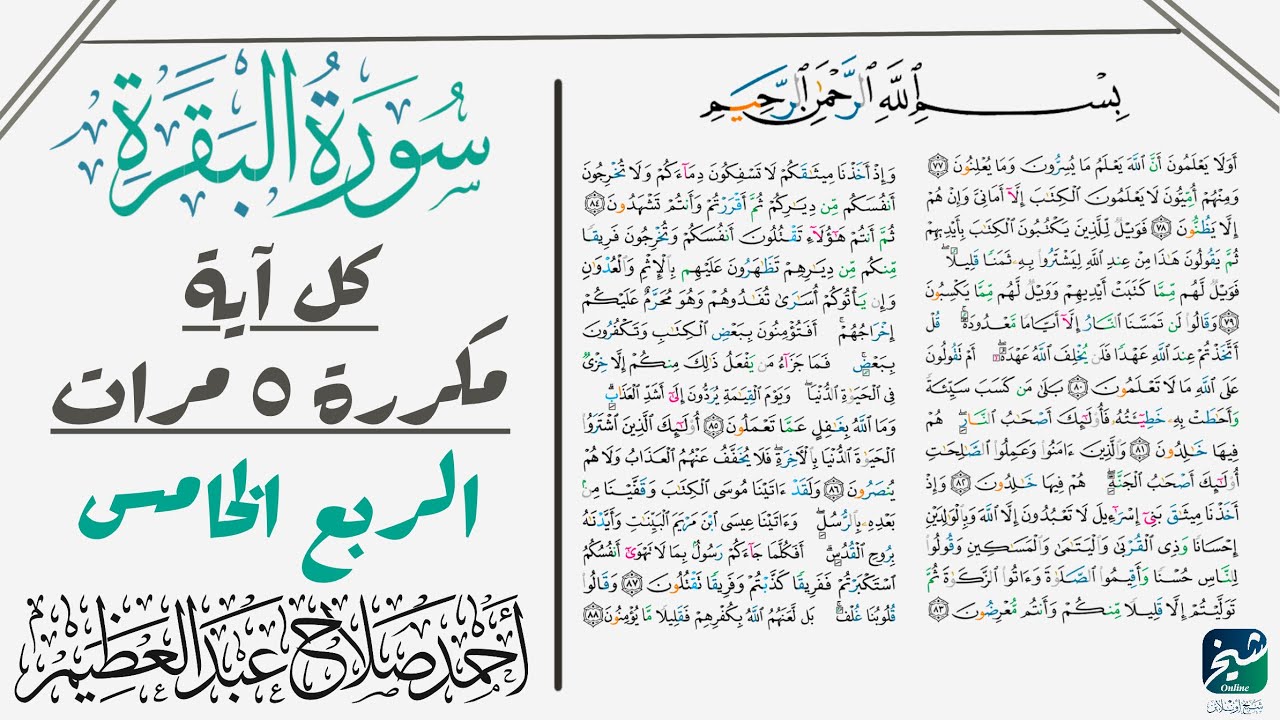 سُورَةُ البَقَرَةِ
كل آية
مكررة ٥ مرات
الربع الخامس
أحمد صلاح عبد العظيم
بِسْمِ ٱللَّهِ ٱلرَّحْمَٰنِ ٱلرَّحِيمِ
أَوَلَا يَعْلَمُونَ أَنَّ ٱللَّهَ يَعْلَمُ مَا يُسِرُّونَ وَمَا يُعْلِنُونَ ٧٧
وَمِنْهُمْ أُمِّيُّونَ لَا يَعْلَمُونَ ٱلْكِتَٰبَ إِلَّآ أَمَانِىَّ وَإِنْ هُمْ
إِلَّا يَظُنُّونَ ٧٨ فَوَيْلٌ لِّلَّذِينَ يَكْتُبُونَ ٱلْكِتَٰبَ بِأَيْدِيهِمْ
ثُمَّ يَقُولُونَ هَٰذَا مِنْ عِندِ ٱللَّهِ لِيَشْتَرُوا۟ بِهِۦ ثَمَنًا قَلِيلًا ۖ
فَوَيْلٌ لَّهُم مِّمَّا كَتَبَتْ أَيْدِيهِمْ وَوَيْلٌ لَّهُم مِّمَّا يَكْسِبُونَ
٧٩ وَقَالُوا۟ لَن تَمَسَّنَا ٱلنَّارُ إِلَّآ أَيَّامًا مَّعْدُودَةً ۚ قُلْ
أَتَّخَذْتُمْ عِندَ ٱللَّهِ عَهْدًا فَلَن يُخْلِفَ ٱللَّهُ عَهْدَهُۥٓ ۖ أَمْ تَقُولُونَ
عَلَى ٱللَّهِ مَا لَا تَعْلَمُونَ ٨٠ بَلَىٰ مَن كَسَبَ سَيِّئَةً
وَأَحَٰطَتْ بِهِۦ خَطِيٓـَٔتُهُۥ فَأُو۟لَٰٓئِكَ أَصْحَٰبُ ٱلنَّارِ ۖ هُمْ
فِيهَا خَٰلِدُونَ ٨١ وَٱلَّذِينَ ءَامَنُوا۟ وَعَمِلُوا۟ ٱلصَّٰلِحَٰتِ
أُو۟لَٰٓئِكَ أَصْحَٰبُ ٱلْجَنَّةِ ۖ هُمْ فِيهَا خَٰلِدُونَ ٨٢ وَإِذْ
أَخَذْنَا مِيثَٰقَ بَنِىٓ إِسْرَٰٓءِيلَ لَا تَعْبُدُونَ إِلَّا ٱللَّهَ وَبِٱلْوَٰلِدَيْنِ
إِحْسَانًا وَذِى ٱلْقُرْبَىٰ وَٱلْيَتَٰمَىٰ وَٱلْمَسَٰكِينِ وَقُولُوا۟
لِلنَّاسِ حُسْنًا وَأَقِيمُوا۟ ٱلصَّلَوٰةَ وَءَاتُوا۟ ٱلزَّكَوٰةَ ثُمَّ
تَوَلَّيْتُمْ إِلَّا قَلِيلًا مِّنكُمْ وَأَنتُم مُّعْرِضُونَ ٨٣
وَإِذْ أَخَذْنَا مِيثَٰقَكُمْ لَا تَسْفِكُونَ دِمَآءَكُمْ وَلَا تُخْرِجُونَ
أَنفُسَكُم مِّن دِيَٰرِكُمْ ثُمَّ أَقْرَرْتُمْ وَأَنتُمْ تَشْهَدُونَ ٨٤
ثُمَّ أَنتُمْ هَٰٓؤُلَآءِ تَقْتُلُونَ أَنفُسَكُمْ وَتُخْرِجُونَ فَرِيقًا
مِّنكُم مِّن دِيَٰرِهِمْ تَظَٰهَرُونَ عَلَيْهِم بِٱلْإِثْمِ وَٱلْعُدْوَٰنِ
وَإِن يَأْتُوكُمْ أُسَٰرَىٰ تُفَٰدُوهُمْ وَهُوَ مُحَرَّمٌ عَلَيْكُمْ
إِخْرَاجُهُمْ ۚ أَفَتُؤْمِنُونَ بِبَعْضِ ٱلْكِتَٰبِ وَتَكْفُرُونَ
بِبَعْضٍ ۚ فَمَا جَزَآءُ مَن يَفْعَلُ ذَٰلِكَ مِنكُمْ إِلَّا خِزْىٌ
فِى ٱلْحَيَوٰةِ ٱلدُّنْيَا ۖ وَيَوْمَ ٱلْقِيَٰمَةِ يُرَدُّونَ إِلَىٰٓ أَشَدِّ ٱلْعَذَابِ ۗ
وَمَا ٱللَّهُ بِغَٰفِلٍ عَمَّا تَعْمَلُونَ ٨٥ أُو۟لَٰٓئِكَ ٱلَّذِينَ ٱشْتَرَوُا۟
ٱلْحَيَوٰةَ ٱلدُّنْيَا بِٱلْءَاخِرَةِ ۖ فَلَا يُخَفَّفُ عَنْهُمُ ٱلْعَذَابُ وَلَا هُمْ
يُنصَرُونَ ٨٦ وَلَقَدْ ءَاتَيْنَا مُوسَى ٱلْكِتَٰبَ وَقَفَّيْنَا مِنۢ
بَعْدِهِۦ بِٱلرُّسُلِ ۖ وَءَاتَيْنَا عِيسَى ٱبْنَ مَرْيَمَ ٱلْبَيِّنَٰتِ وَأَيَّدْنَٰهُ
بِرُوحِ ٱلْقُدُسِ ۗ أَفَكُلَّمَا جَآءَكُمْ رَسُولٌۢ بِمَا لَا تَهْوَىٰٓ أَنفُسُكُمُ
ٱسْتَكْبَرْتُمْ فَفَرِيقًا كَذَّبْتُمْ وَفَرِيقًا تَقْتُلُونَ ٨٧ وَقَالُوا۟
قُلُوبُنَا غُلْفٌۢ ۚ بَل لَّعَنَهُمُ ٱللَّهُ بِكُفْرِهِمْ فَقَلِيلًا مَّا يُؤْمِنُونَ ٨٨
شيخ
Online
شيخ اونلاين